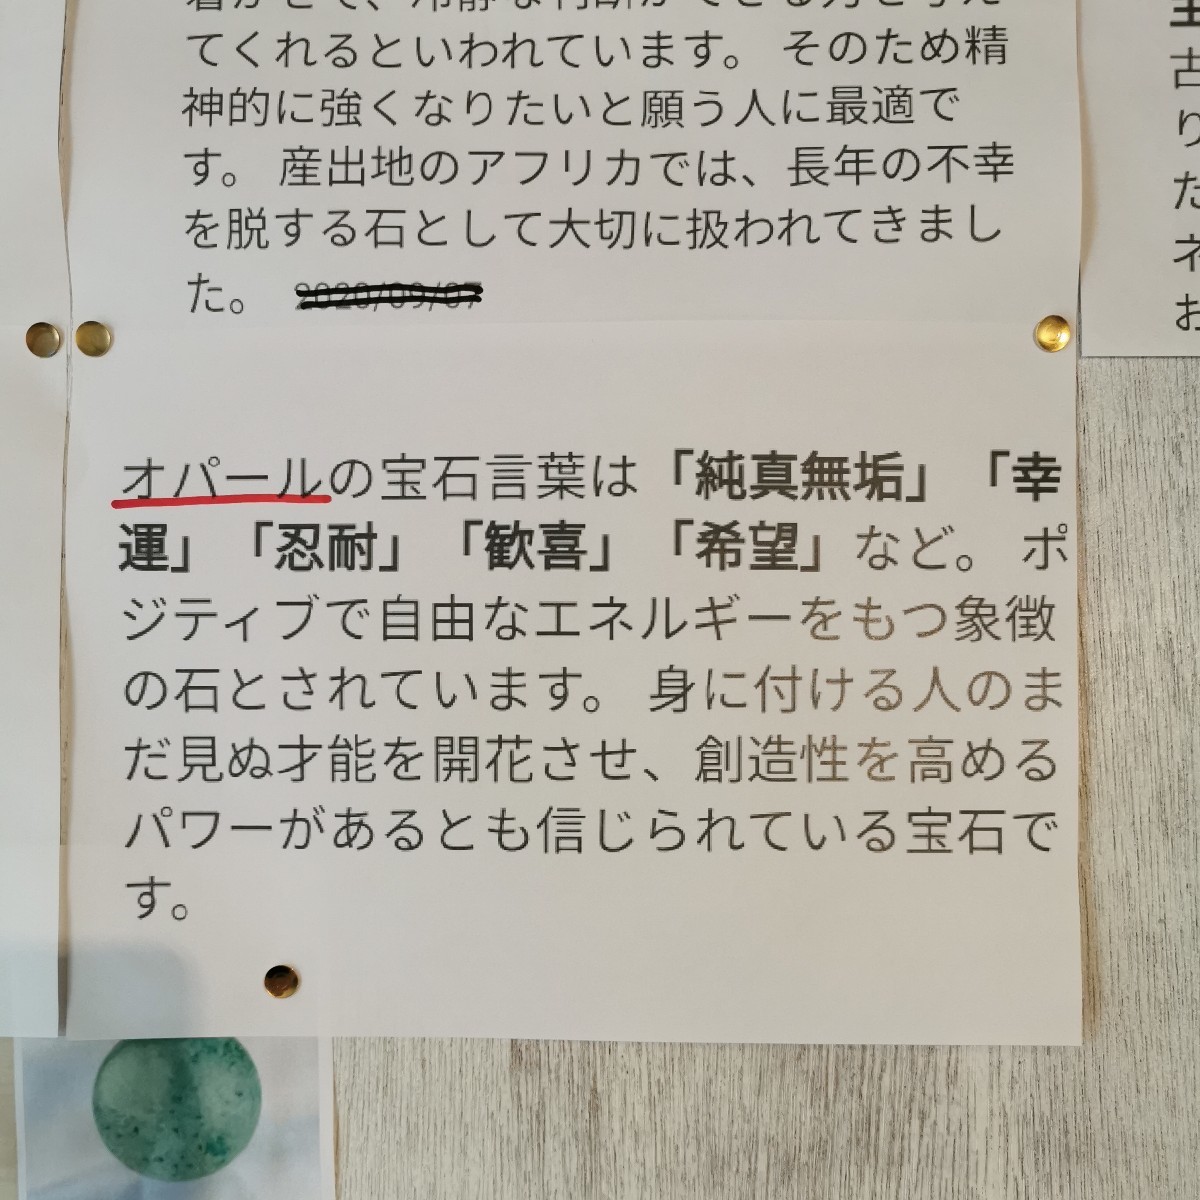 てくれるといわれています。 そのため精
神的に強くなりたいと願う人に最適で
す。 産出地のアフリカでは、長年の不幸
を脱する石として大切に扱われてきまし
た。 2020/09/07
オパールの宝石言葉は「純真無垢」「幸
運」「忍耐」「歓喜」「希望」など。 ポ
ジティブで自由なエネルギーをもつ象徴
の石とされています。 身に付ける人のま
だ見ぬ才能を開花させ、創造性を高める
パワーがあるとも信じられている宝石で
す。
古
り
た
ネ
お